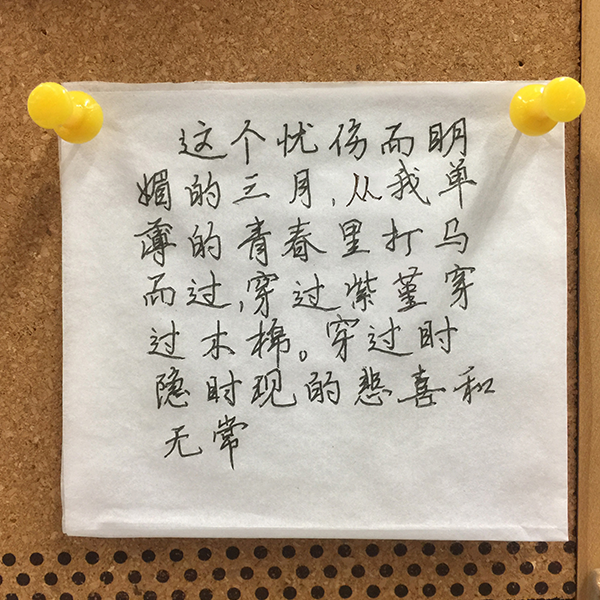 这个忧伤而明
媚的三月,从我单
薄的青春里打马
而过,穿过紫堇穿
过木棉。穿过时
隐时现的悲喜和
无常